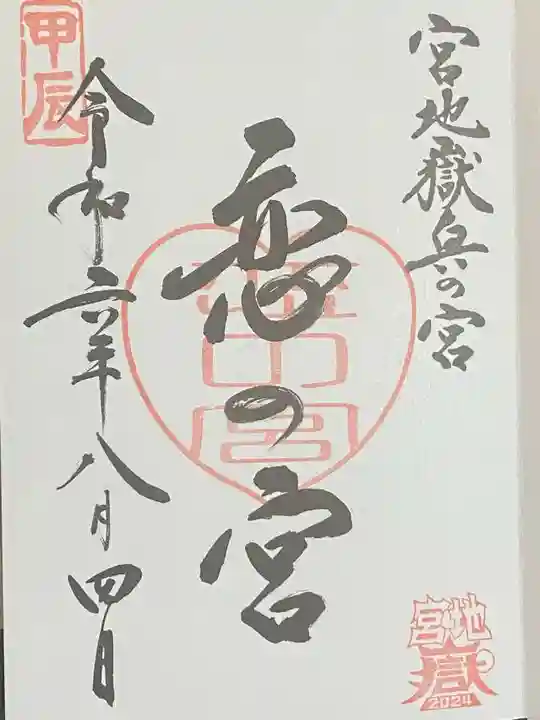 宮地嶽奥の宮
恋の宮
甲辰
令和六年八月四日
宮地
嶽
2024